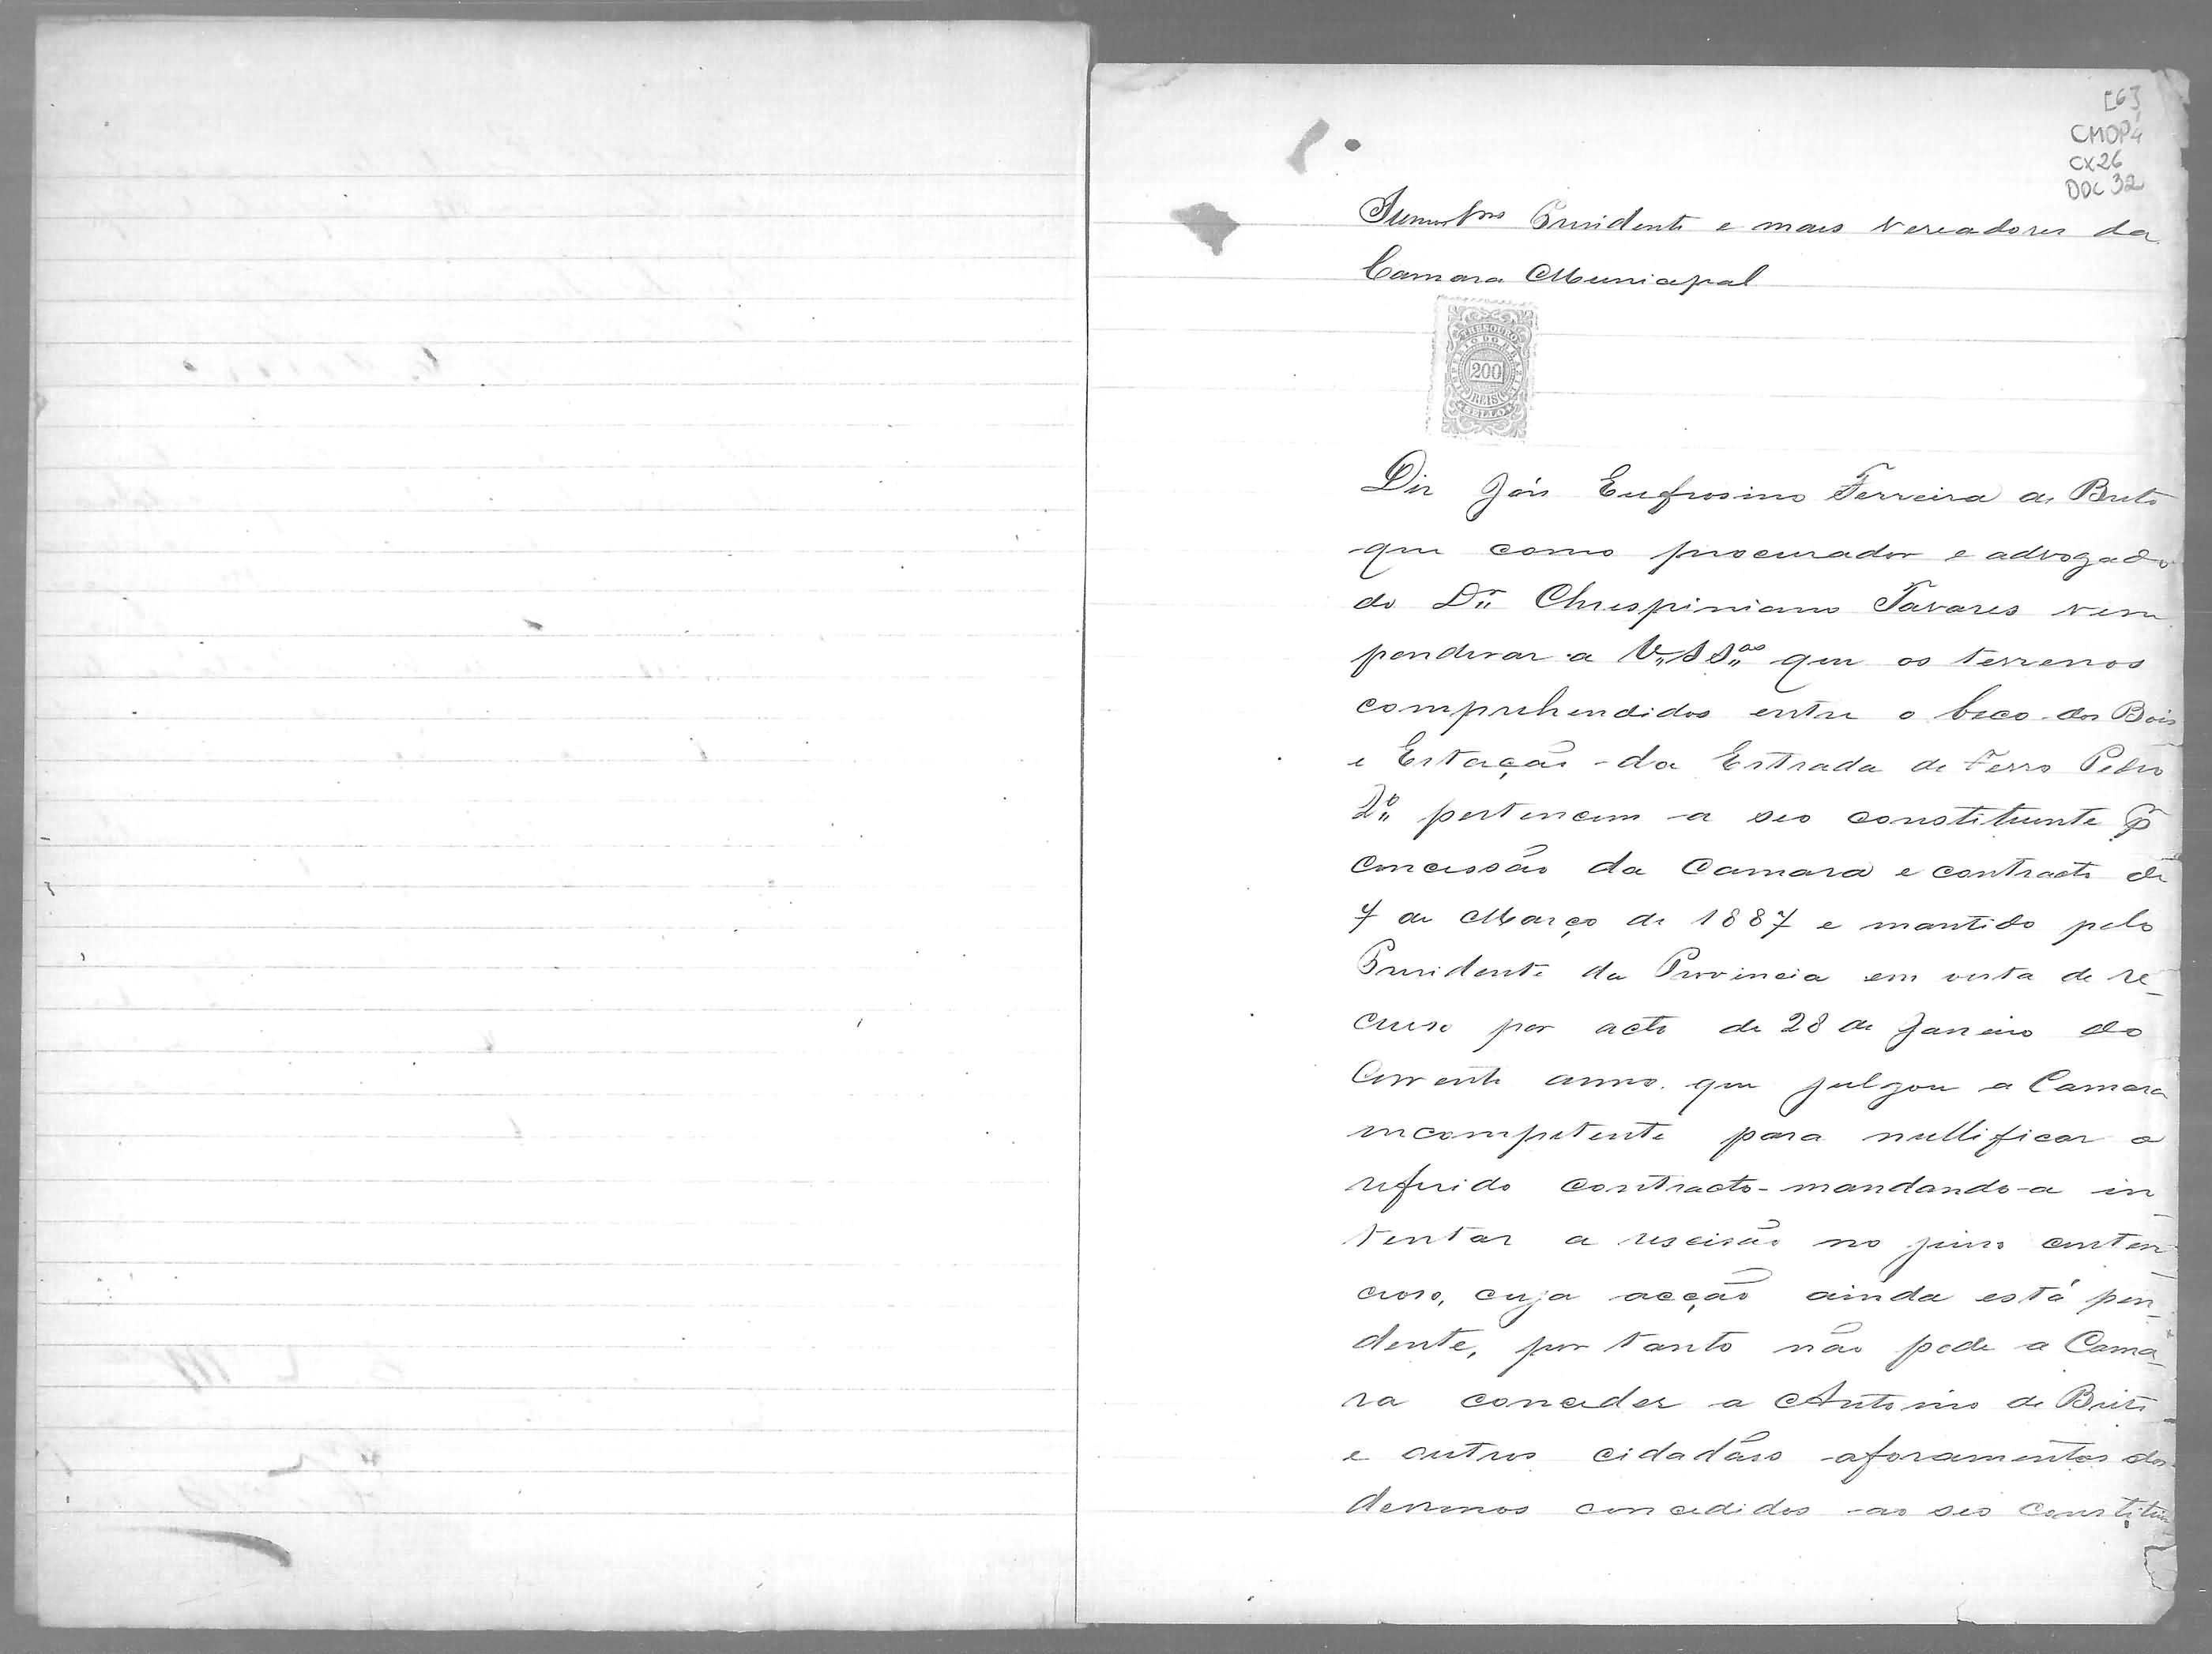 [6]
CMOP4
CX26
DOC 32
Presidente e mais Vereadores da
Camara Municipal
THESOURO
IMPERIO DO BRAZIL
200
REIS
Diz José Eufrosino Ferreira de Brito
que como procurador e advogado
do Dr. Chrispiniano Tavares vem
ponderar a V. S. S.as que os terrenos
comprehendidos entre o beco dos Bois
e Estação da Estrada de Ferro Pedro
2º pertencem a seo constituinte p
concessão da Camara e contracto de
7 de Março de 1887 e mantido pelo
Presidente da Provincia em vista de re-
curso por acto de 28 de Janeiro do
Corrente anno que julgou a Camara
incompetente para nullificar o
referido contracto-mandando-a in-
tentar a rescisão no juiso conten-
cioso, cuja acção ainda está pen-
dente, por tanto não pode a Cama-
ra conceder a Antonio de Brito
e outros cidadãos aforamentos dos
terrenos concedidos ao seo constituin-